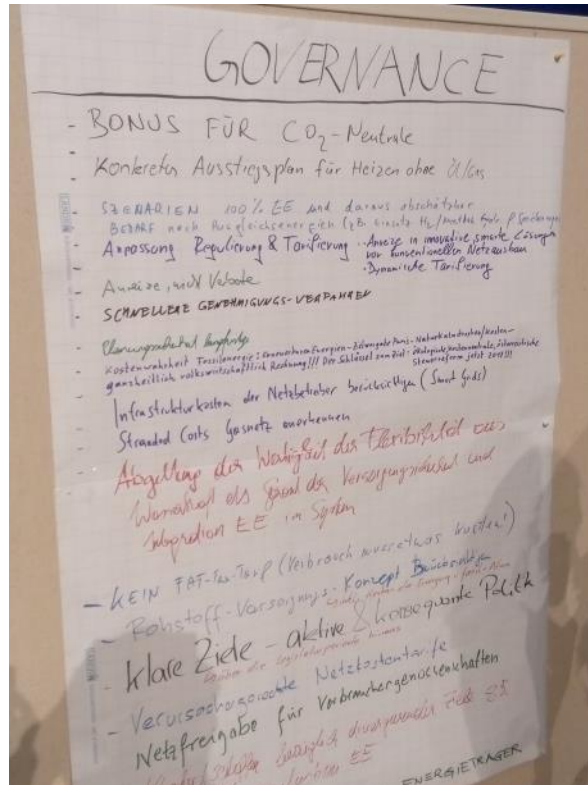 GOVERNANCE
- BONUS FÜR CO₂-Neutrale
- Konkreter Ausstiegsplan für Heizen ohne Öl/Gas
- SZENARIEN 100% EE und daraus abschätzbar
BEDARF nach Ausgleichsenergien (zB Einsatz H₂/
- Anpassung Regulierung & Tarifierung · Anreize in innovative smarte Lösungen
vor konventionellen Netzausbau
· Dynamische Tarifierung
- Anreize, nicht Verbote
- SCHNELLERE GENEHMIGUNGS-VERFAHREN
- Planungssicherheit langfristig
- Kostenwahrheit Fossilenergie: Erneuerbaren Energien - Paris - Naturkatastrophen/Kosten-
ganzheitlich volkswirtschaftlich Rechnung!!! Der Schlüssel zum Ziel: ökologische
Steuerreform jetzt 2018!!!
- Infrastrukturkosten der Netzbetreiber berücksichtigen (Smart Grids)
- Stranded Costs Gasnetz anerkennen
- Abgeltung der Wertigkeit der Flexibilität aus
als der Versorgungssicherheit und
Integration EE im System
- KEIN (Verbrauch muss etwas kosten!)
- Rohstoff-Versorgungs-Konzept Berücksichtigen
- klare Ziele - aktive & konsequente Politik
über die Legislaturperiode hinaus
- Verursachergerechte Netzkostentarife
- Netzfreigabe für Verbrauchergenossenschaften
bezüglich
EE
ENERGIETRÄGER